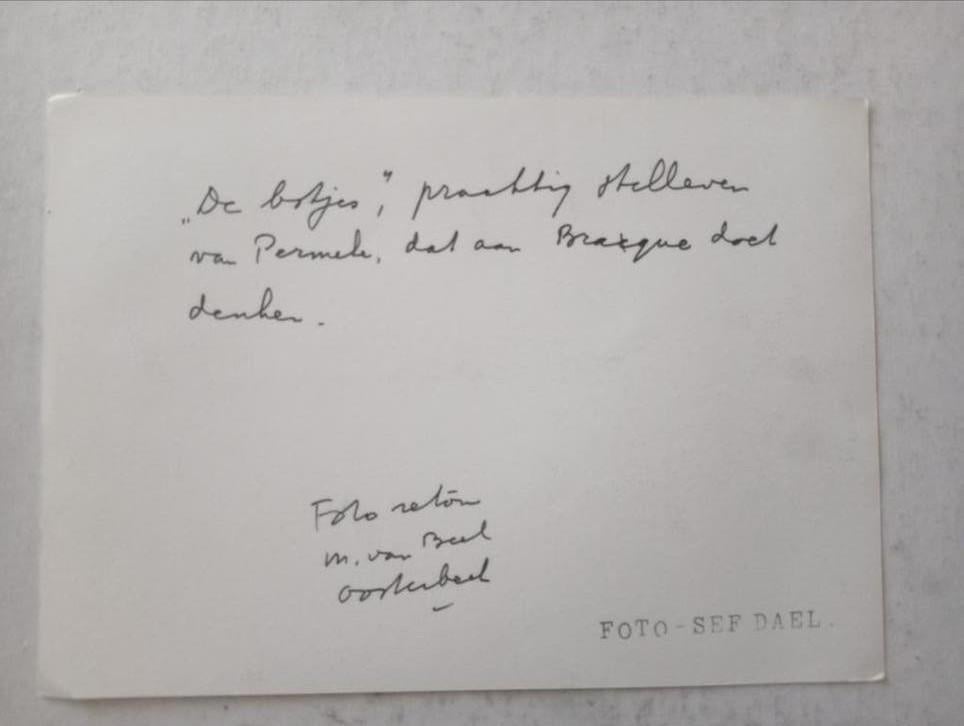 „De botjes", prachtig stilleven
van Permeke, dat aan Braque doet
denken.
Foto retour
M. van Beek
Oosterbeek
FOTO-SEF DAEL.